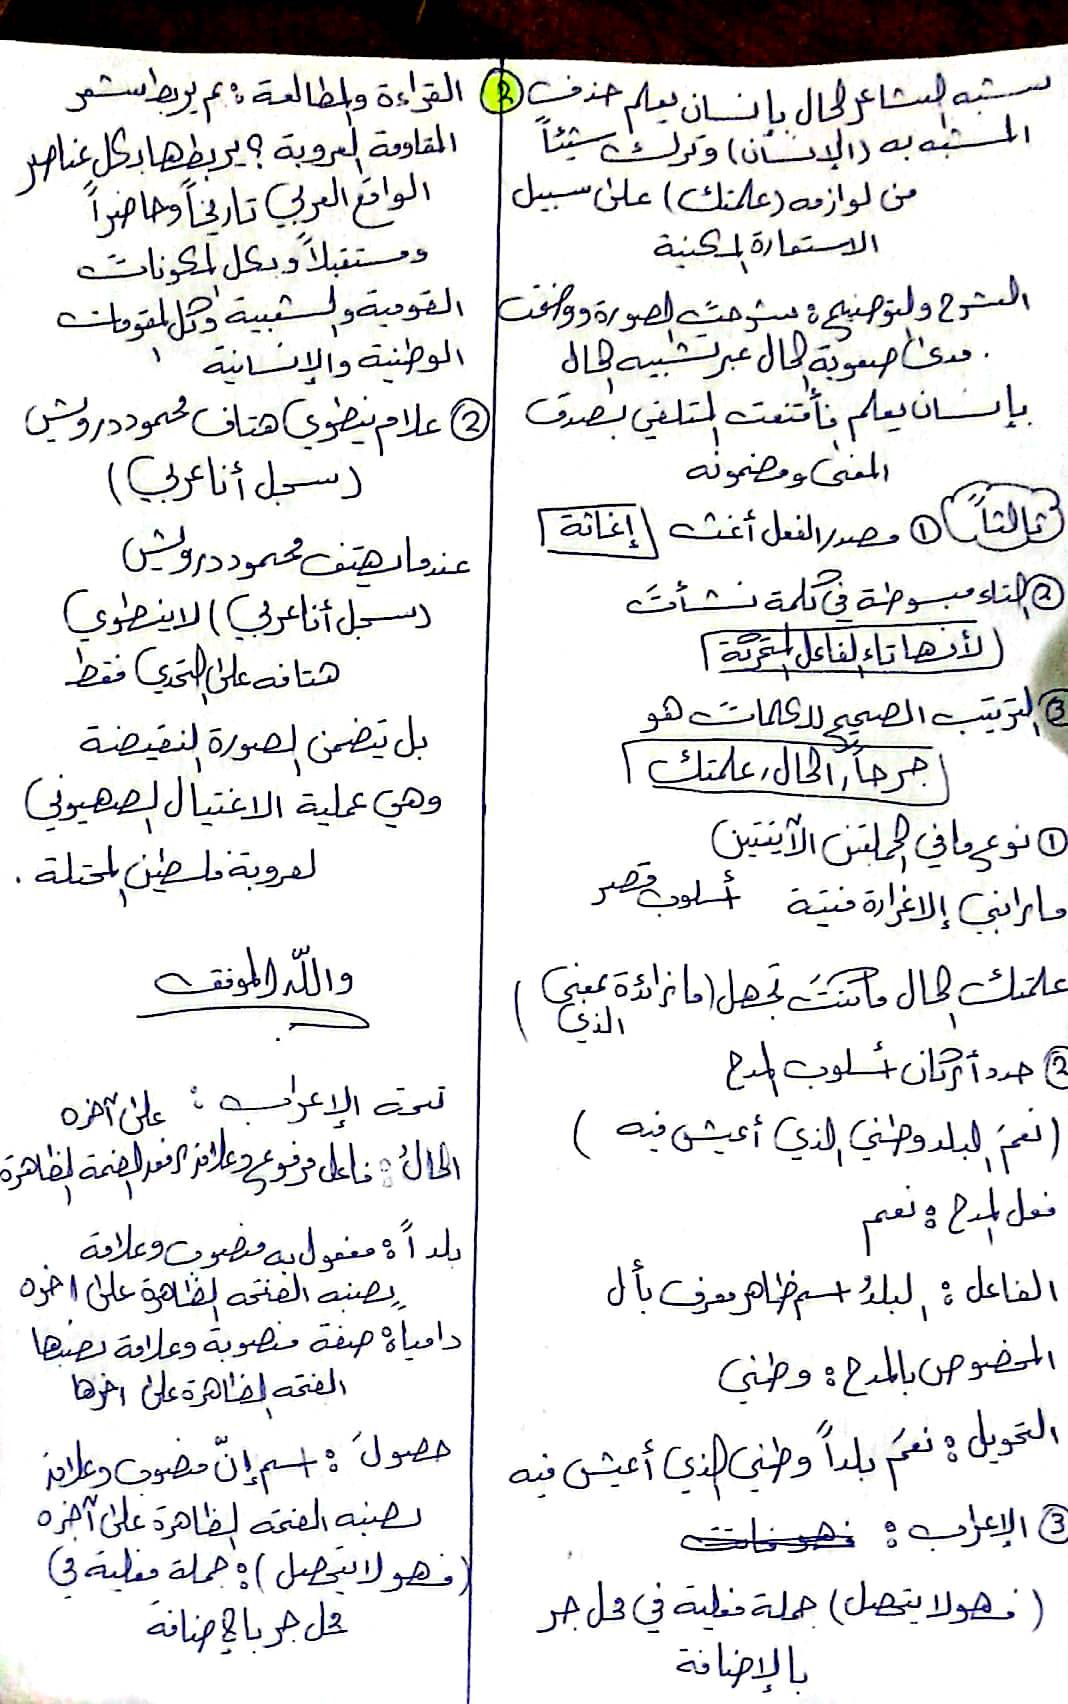 شبه الشاعر الحال بإنسان يعلم حذف
المشبه به (الإنسان) وترك شيئاً
من لوازمه (علمتك) على سبيل
الاستعارة المكنية
الشرح والتوضيح: شرحت الصورة ووضحت
مدى صعوبة الحال عبر تشبيه الحال
بإنسان يعلم فأقنعت المتلقي بصدق
المعنى ومضمونه
ثالثاً ① مصدر الفعل أغث إغاثة
② التاء مبسوطة في كلمة نشأت
لأنها تاء الفاعل المتحركة
③ الترتيب الصحيح للكلمات هو
جرحاً، الحال، علمتك
① نوع ما في الجملتين الآتيتين
ما رابني إلا غرارة فتية أسلوب قصر
علمتك الحال ما كنتَ تجهل (ما زائدة بمعنى الذي)
② حدد أركان أسلوب المدح
(نعمَ البلد وطني الذي أعيش فيه)
فعل المدح: نعم
الفاعل: البلدُ اسم ظاهر معرف بأل
المخصوص بالمدح: وطني
التحويل: نعمَ بلداً وطني الذي أعيش فيه
③ الإعراب:
(فهو لا يتحصل) جملة فعلية في محل جر
بالإضافة
② القراءة والمطالعة: بم يربط شعر
المقاومة العروبة؟ يربطها بكل عناصر
الواقع العربي تاريخاً وحاضراً
ومستقبلاً وبكل المكونات
القومية والشعبية وكل المقومات
الوطنية والإنسانية
② علام ينطوي هتاف محمود درويش
(سجل أنا عربي)
عندما يهتف محمود درويش
(سجل أنا عربي) لا ينطوي
هتافه على التحدي فقط
بل يتضمن الصورة النقيضة
وهي عملية الاغتيال الصهيوني
لعروبة فلسطين المحتلة.
والله الموفق
تتمة الإعراب: على آخره
الحالُ: فاعل مرفوع وعلامة رفعه الضمة الظاهرة
بلداً: مفعول به منصوب وعلامة
نصبه الفتحة الظاهرة على اخره
دامياً: صفة منصوبة وعلامة نصبها
الفتحه الظاهرة على اخرها
حصولَ: اسم إنّ منصوب وعلامة
نصبه الفتحه الظاهرة على آخره
(فهو لا يتحصل): جملة فعلية في
محل جر بالإضافة